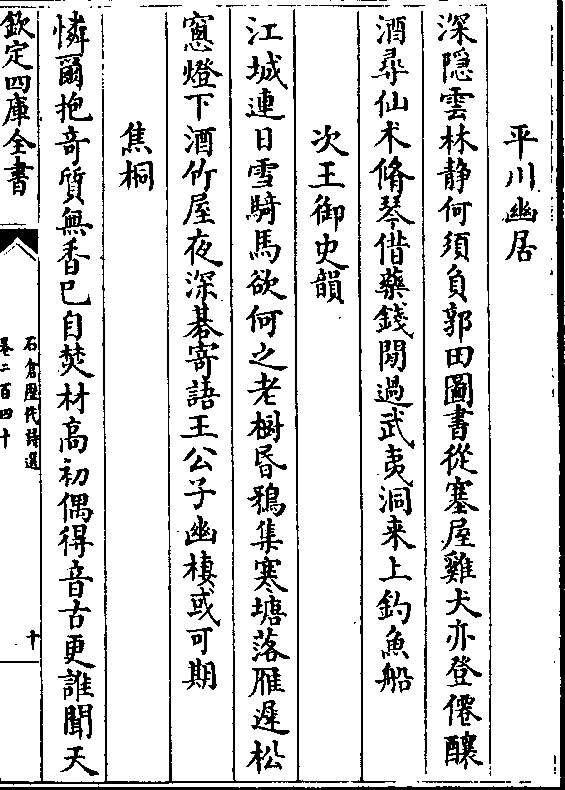 平川幽居
深隠雲林静何須負郭田圖書從塞屋雞犬亦登僊釀
酒尋仙术脩琴借藥錢閒過武夷洞来上釣魚船
次王御史韻
江城連日雪騎馬欲何之老樹昏鴉集寒塘落雁遲松
窻燈下酒竹屋夜深碁寄語王公子幽棲或可期
焦桐
憐爾抱竒質無香已自焚材高初偶得音古更誰聞天
欽定四庫全書
石倉歷代詩選
卷二百四十
十